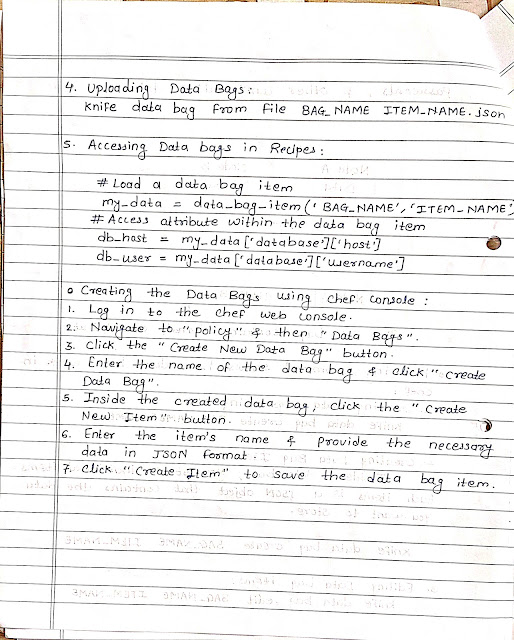 4. Uploading Data Bags:
knife data bag from file BAG_NAME ITEM_NAME.json
5. Accessing Data bags in Recipes:
# Load a data bag item
my_data = data_bag_item('BAG_NAME', 'ITEM_NAME')
# Access attribute within the data bag item
db_host = my_data['database']['host']
db_user = my_data['database']['username']
o Creating the Data Bags using Chef console:
1. Log in to the chef web console.
2. Navigate to "policy" & then "Data Bags".
3. Click the "Create New Data Bag" button.
4. Enter the name of the data bag & click "Create
Data Bag".
5. Inside the created data bag, click the "Create
New Item" button.
6. Enter the item's name & provide the necessary
data in JSON format.
7. Click "Create Item" to save the data bag item.